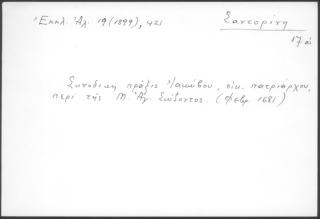 Ἐκκλ. Ἀλ. 19 (1899), 421
Σαντορίνη
17 αἰ
Συνοδικὴ πρᾶξις Ἰακώβου, οἰκ. πατριάρχου,
περὶ τῆς Μ. Ἁγ. Σώζοντος. (Φεβρ. 1681)